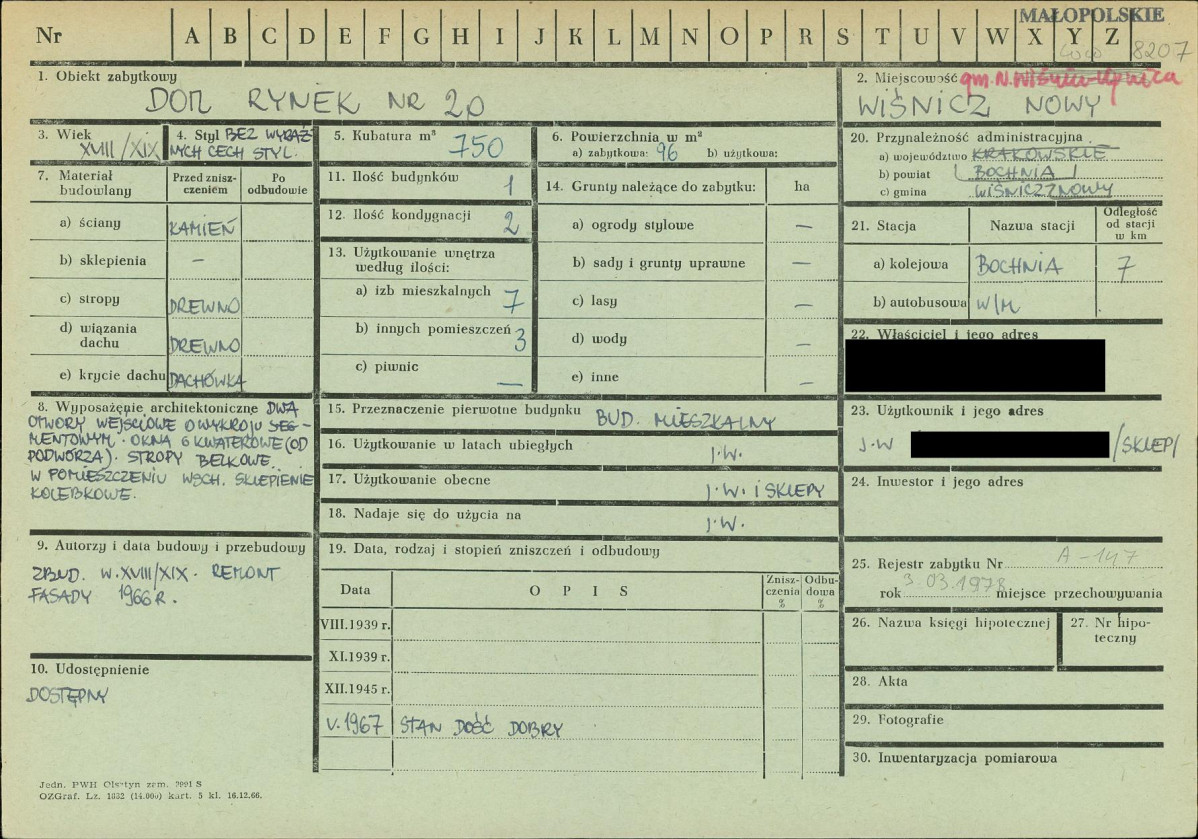 MAŁOPOLSKIE
Nr A B C D E F G H I J K L M N O P R S T U V W X Y Z
8207
1. Obiekt zabytkowy
DOM RYNEK NR 20
2. Miejscowość gm. N. Wiśnicz
WIŚNICZ NOWY
3. Wiek
XVIII/XIX
4. Styl BEZ WYRAŹ
NYCH CECH STYL.
5. Kubatura m³
750
6. Powierzchnia w m²
a) zabytkowa: 96 b) użytkowa:
7. Materiał budowlany
Przed zniszczeniem
Po odbudowie
a) ściany KAMIEŃ
b) sklepienia –
c) stropy DREWNO
d) wiązania dachu DREWNO
e) krycie dachu DACHÓWKA
8. Wyposażenie architektoniczne DWA
OTWORY WEJŚCIOWE O WYKROJU SEG-
MENTOWYM. OKNA 6 KWATEROWE (OD
PODWÓRZA). STROPY BELKOWE.
W POMIESZCZENIU WSCH. SKLEPIENIE
KOLEBKOWE.
9. Autorzy i data budowy i przebudowy
ZBUD. W. XVIII/XIX. REMONT
FASADY 1966 R.
10. Udostępnienie
DOSTĘPNY
11. Ilość budynków 1
12. Ilość kondygnacji 2
13. Użytkowanie wnętrza
według ilości:
a) izb mieszkalnych 7
b) innych pomieszczeń 3
c) piwnic —
14. Grunty należące do zabytku: ha
a) ogrody stylowe –
b) sady i grunty uprawne –
c) lasy –
d) wody –
e) inne –
15. Przeznaczenie pierwotne budynku BUD. MIESZKALNY
16. Użytkowanie w latach ubiegłych J.W.
17. Użytkowanie obecne J.W. I SKLEPY
18. Nadaje się do użycia na J.W.
19. Data, rodzaj i stopień zniszczeń i odbudowy
Data
O P I S
Znisz-
czenia
%
Odbu-
dowa
%
VIII.1939 r.
XI.1939 r.
XII.1945 r.
V.1967 STAN DOŚĆ DOBRY
20. Przynależność administracyjna
a) województwo KRAKOWSKIE
b) powiat BOCHNIA
c) gmina WIŚNICZ NOWY
21. Stacja
Nazwa stacji
Odległość
od stacji
w km
a) kolejowa BOCHNIA 7
b) autobusowa W/M
22. Właściciel i jego adres
23. Użytkownik i jego adres
J.W /SKLEP/
24. Inwestor i jego adres
25. Rejestr zabytku Nr A-147
rok 3.03.1978 miejsce przechowywania
26. Nazwa księgi hipotecznej
27. Nr hipo-
teczny
28. Akta
29. Fotografie
30. Inwentaryzacja pomiarowa
Jedn. PWH Olsztyn zam. 2991 S
OZGraf. Lz. 1832 (14.000) kart. 5 kl. 16.12.66.